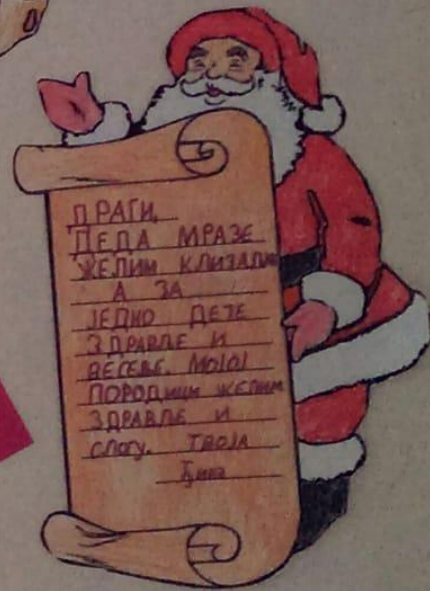 ДРАГИ,
ДЕДА МРАЗЕ
ЖЕЛИМ КЛИЗАЉКЕ
А ЗА
ЈЕДНО ДЕТЕ
ЗДРАВЉЕ И
ВЕСЕЉЕ. МОЈОЈ
ПОРОДИЦИ ЖЕЛИМ
ЗДРАВЉЕ И
СЛОГУ. ТВОЈА